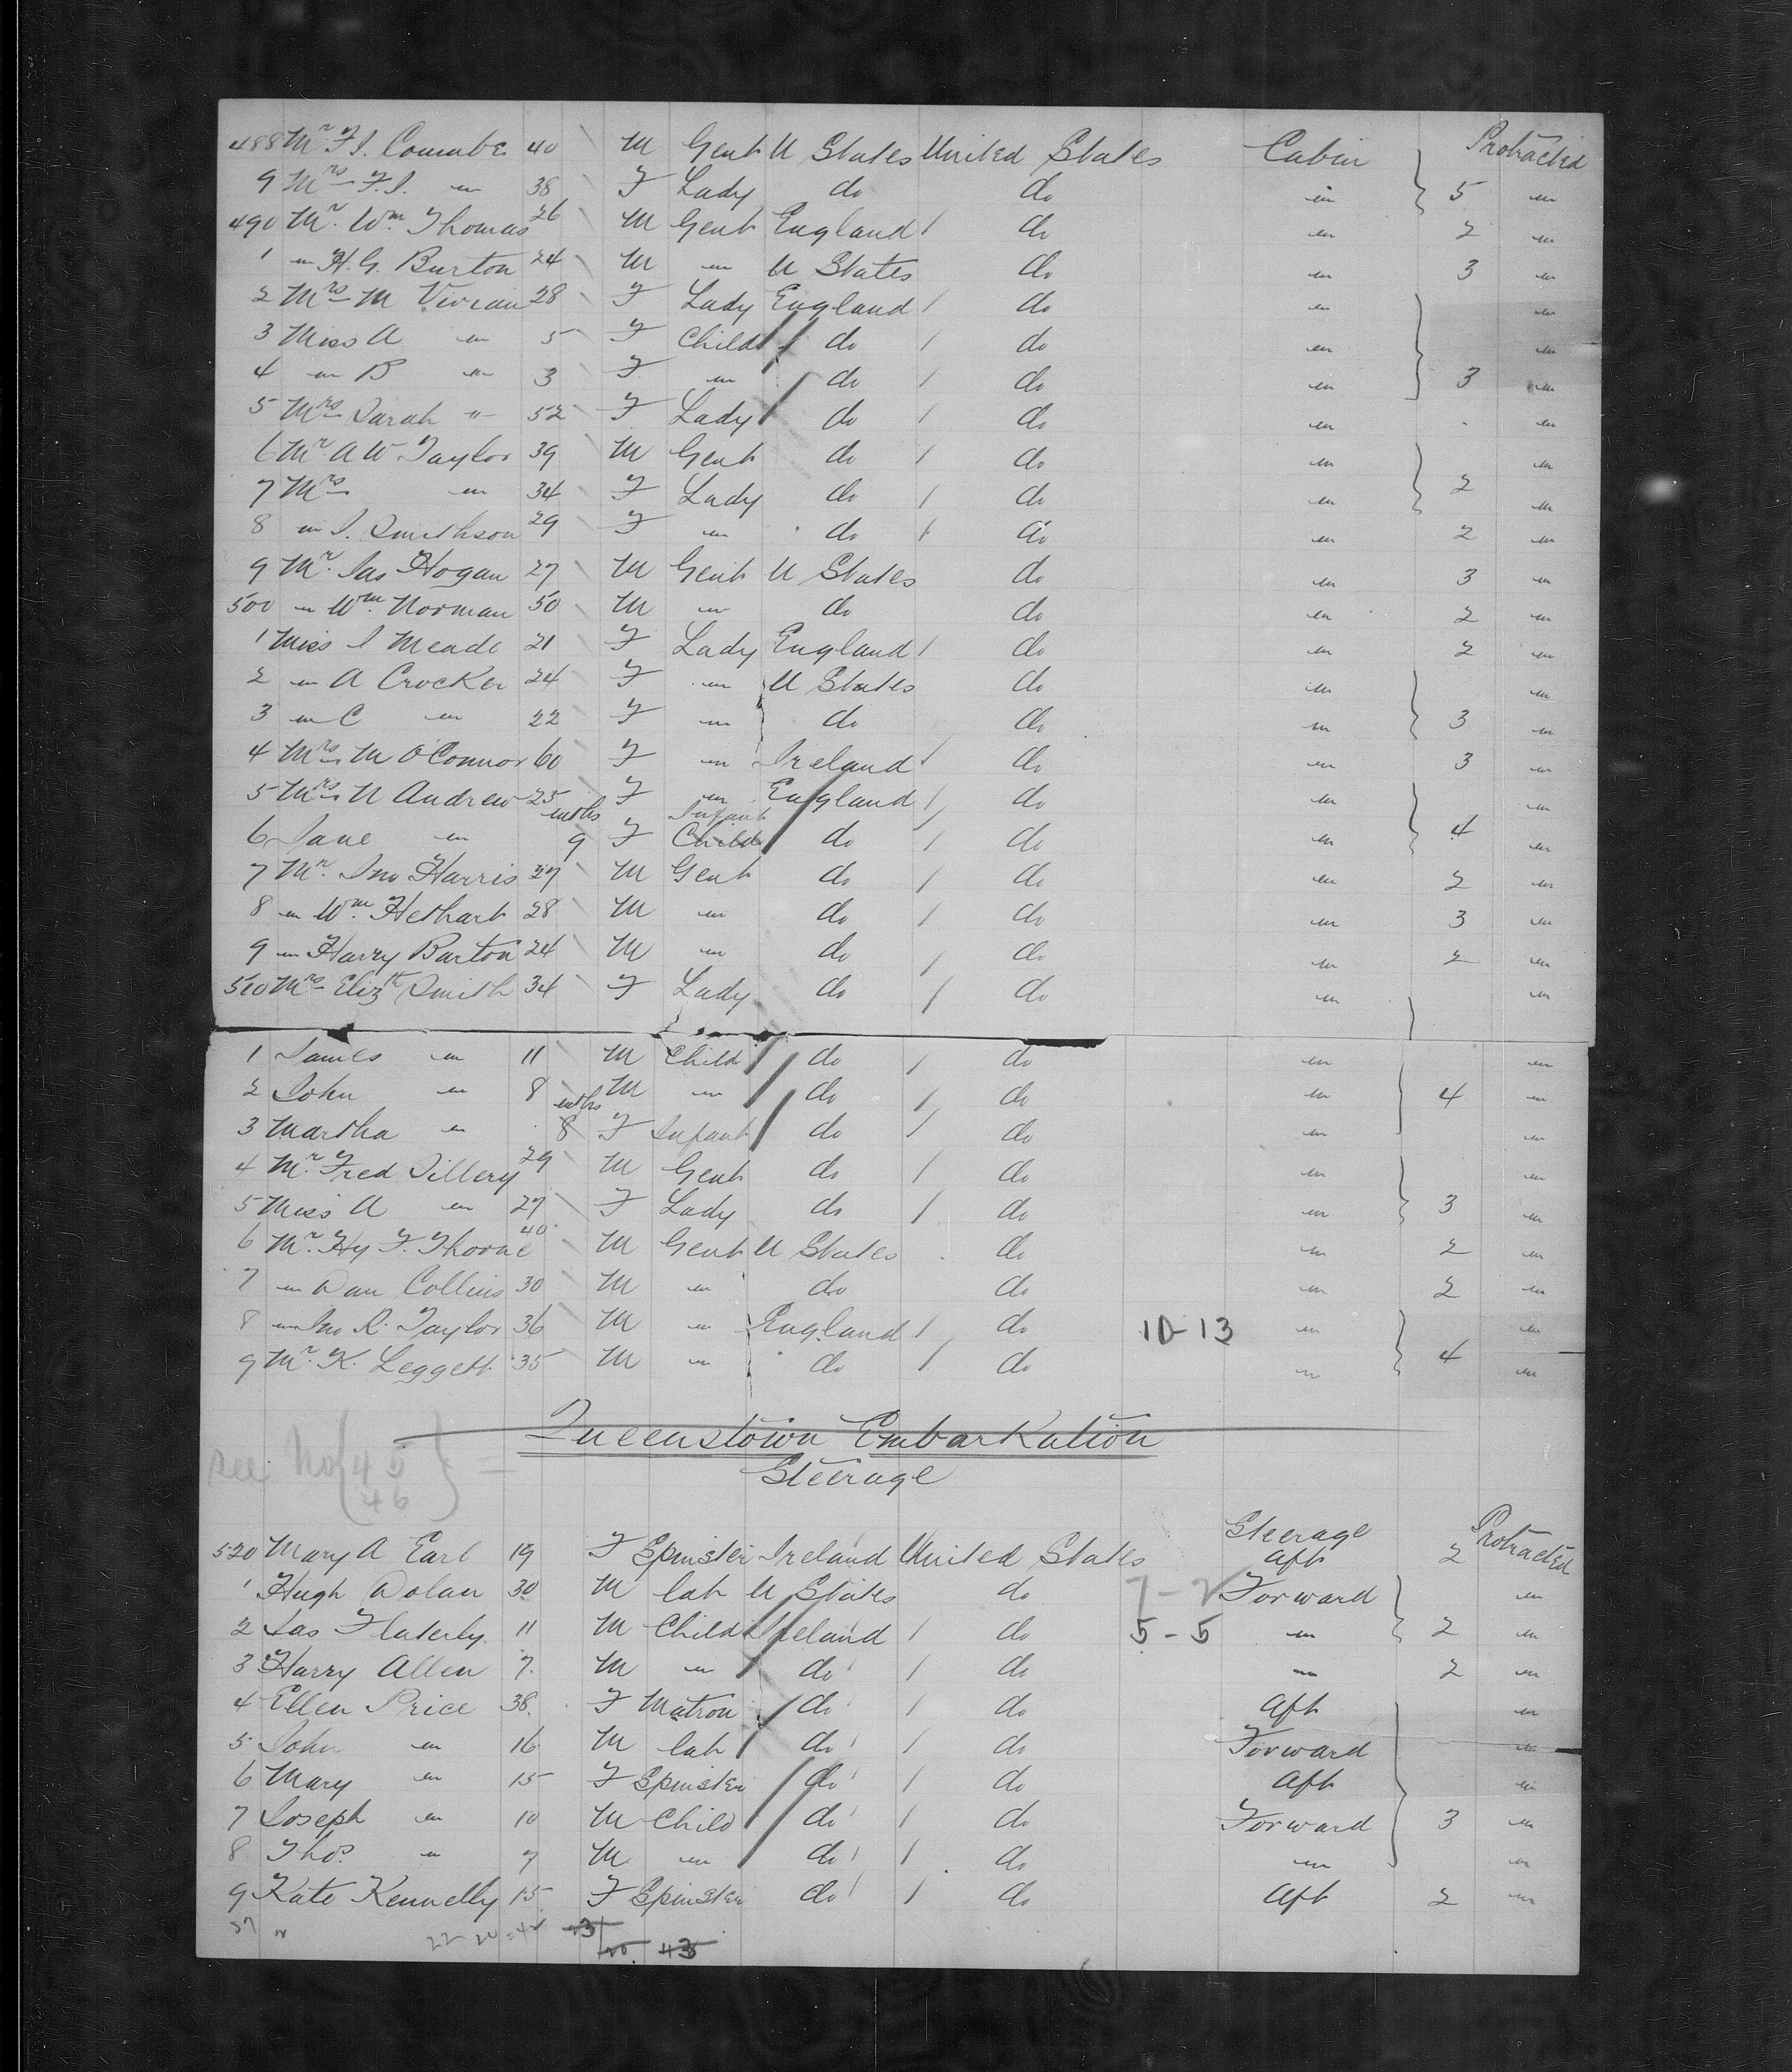 488 Mr F.J. Coumbe 40 M Gent U States United States Cabin 5 Protracted
9 Mrs F.J. " 38 F Lady do do " "
490 Mr. Wm Thomas 26 M Gent England / do " 2 "
1 " H.G. Burton 24 M " U States do " 3 "
2 Mrs M Vivian 28 F Lady England / do " "
3 Miss A " 5 F Child do / do " "
4 " B " 3 F " do / do " 3 "
5 Mrs Sarah " 52 F Lady do / do " "
6 Mr. A W Taylor 39 M Gent do / do " "
7 Mrs " 34 F Lady do / do " 2 "
8 " J. Smithson 29 F " do / do " 2 "
9 Mr. Jas Hogan 27 M Gent U States do " 3 "
500 " Wm. Norman 50 M " do do " 2 "
1 Miss J Meade 21 F Lady England / do " 2 "
2 " A Crocker 24 F " U States do " "
3 " C " 22 F " do do " 3 "
4 Mrs M O'Connor 60 F " Ireland / do " 3 "
5 Mrs N Andrew 25 F " England / do " "
mths Infant
6 Jane " 9 F Child do / do " 4 "
7 Mr. Jno Harris 27 M Gent do / do " 2 "
8 " Wm. Hethart 28 M " do / do " 3 "
9 " Harry Barton 24 M " do / do " 2 "
510 Mrs Elizth Smith 34 F Lady do / do " "
1 James " 11 M Child do / do " "
2 John " 8 M " do / do " 4 "
mths
3 Martha " 8 F Infant do / do " "
4 Mr. Fred Tillery 29 M Gent do / do " "
5 Miss A " 27 F Lady do / do " 3 "
6 Mr. Hy F. Thorne 40 M Gent U States do " 2 "
7 " Dan Collins 30 M " do do " 2 "
8 " Jno R. Taylor 36 M " England / do 10-13 " "
9 Mr. K. Leggett 35 M " do / do " 4 "
Queenstown Embarkation
see No (45
46) =
Steerage
520 Mary A Earl 19 F Spinster Ireland United States Steerage Aft 2 Protracted
1 Hugh Dolan 30 M lab U States do 7-2 Forward "
2 Jas Flaterly 11 M Child Ireland / do 5-5 " 2 "
3 Harry Allen 7 M " do / do " 2 "
4 Ellen Price 38 F Matron do / do Aft "
5 John " 16 M lab do / do Forward "
6 Mary " 15 F Spinster do / do Aft "
7 Joseph " 10 M Child do / do Forward 3 "
8 Thos. " 7 M " do / do " "
9 Kate Kennelly 15 F Spinster do / do Aft 2 "
43